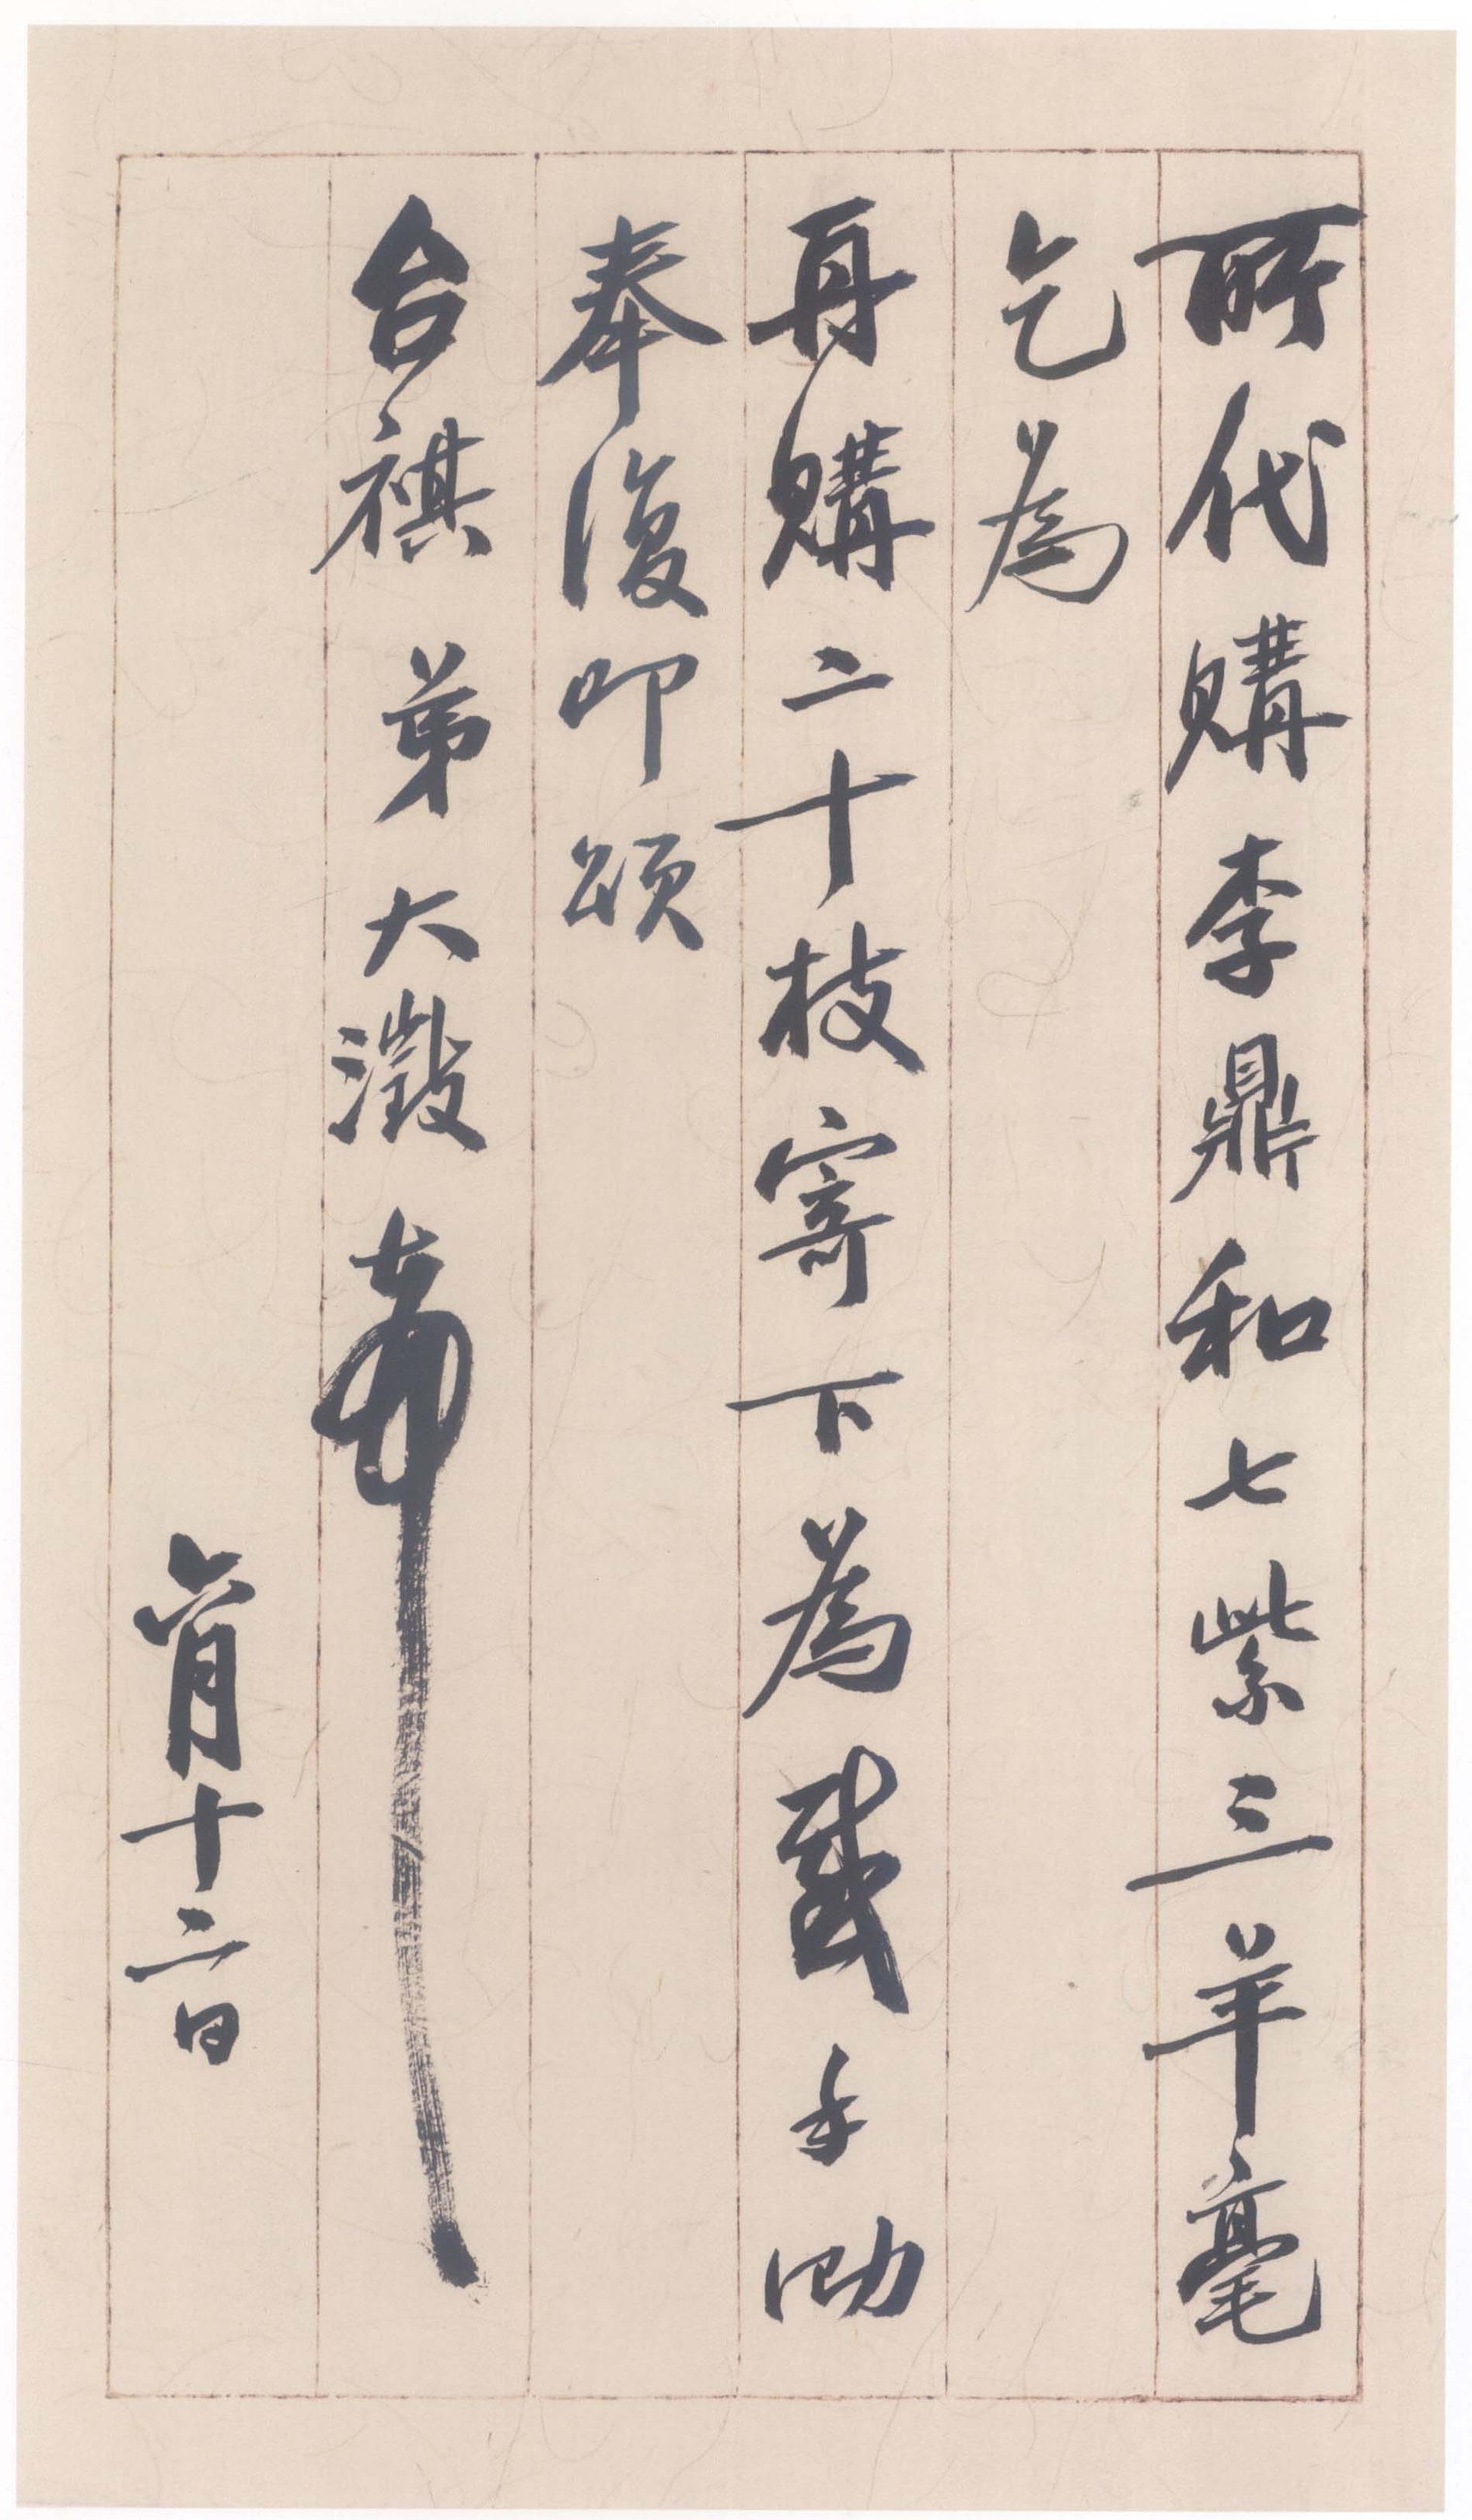 所代購李鼎和七紫三羊毫
乞為
再購二十枝寄下為感手泐
奉復叩頌
台祺 弟大澂頓首
六月十二日